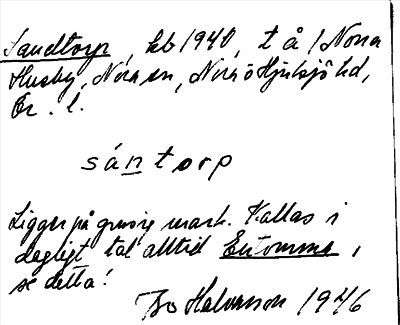 Sandtorp, kb 1940, t å / Norra
Husby, Nora sn, Nora o Hjulsjö hd,
Ör. l.
sántorp
Ligger på grusig mark. Kallas i
dagligt tal alltid Entomme,
se detta!
Bo Halvarson 1946